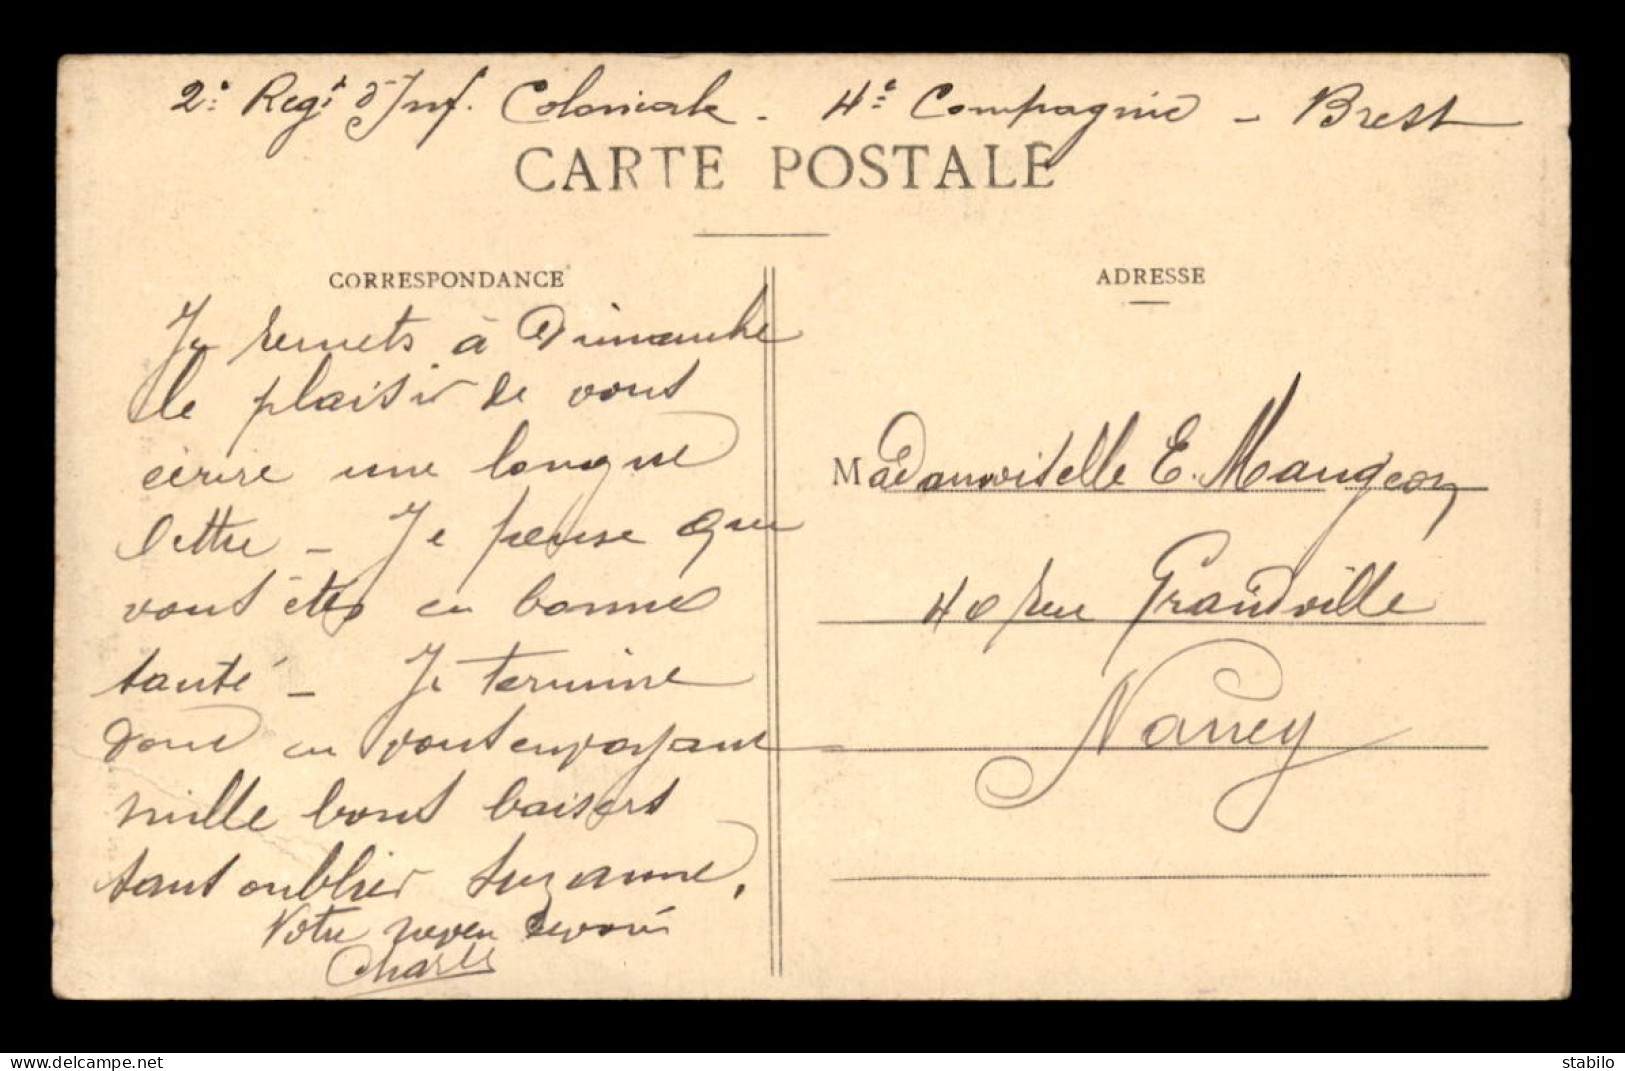 2e Regt d'Inf. Coloniale - 4e Compagnie - Brest
CARTE POSTALE
CORRESPONDANCE
Je remets à Dimanche
le plaisir de vous
écrire une longue
lettre - Je pense que
vous êtes en bonne
santé - Je termine
donc en vous envoyant
mille bons baisers
sans oublier Suzanne.
Votre neveu dévoué
Charles
ADRESSE
Mademoiselle E. Maugeon
40 rue Grandville
Nancy
delcampe.net
stabilo